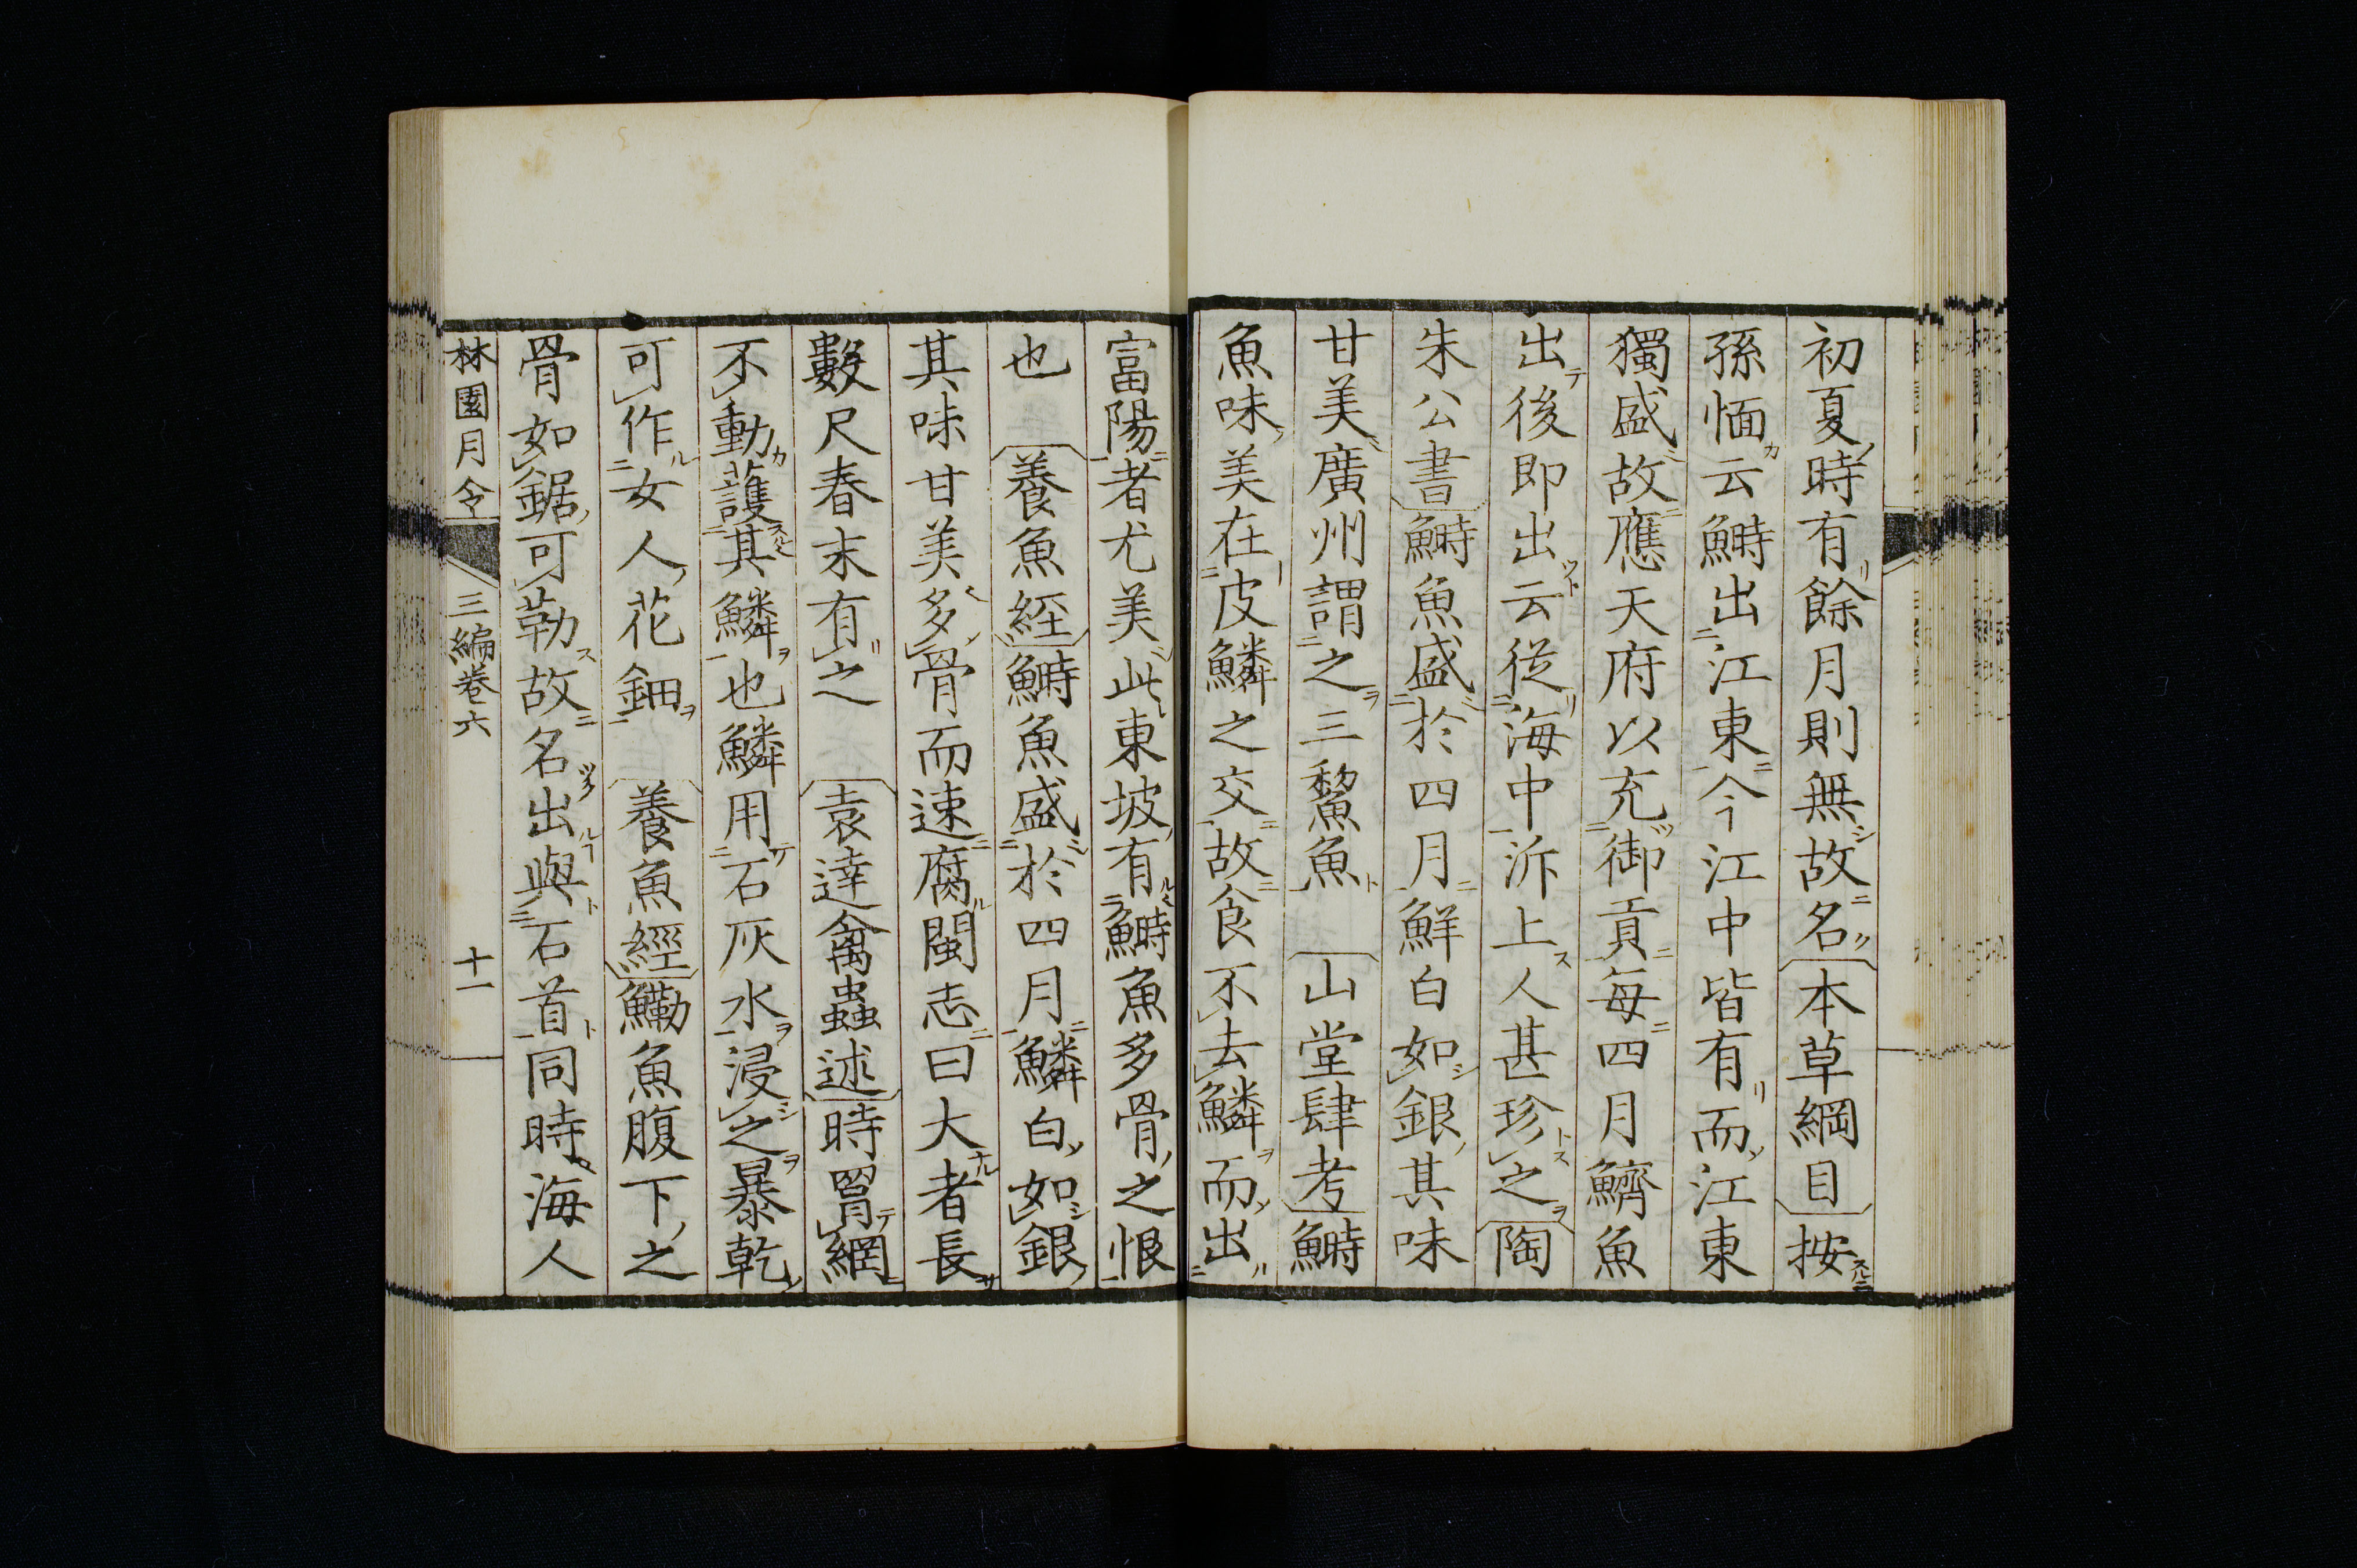 初夏時有餘月則無故名本草綱目按
孫愐云鰣出江東今江中皆有而江東
獨盛故應天府以充御貢每四月鱭魚
出後即出云從海中泝上人甚珍之陶
朱公書鰣魚盛於四月鮮白如銀其味
甘美廣州謂之三鯬魚 山堂肆考鰣
魚味美在皮鱗之交故食不去鱗而出
富陽者尤美此東坡有鰣魚多骨之恨
也 養魚経鰣魚盛於四月鱗白如銀
其味甘美多骨而速腐閩志曰大者長
數尺春末有之 袁達禽蟲述時罥網
不動護其鱗也鱗用石灰水浸之暴乾
可作女人花鈿 養魚經鰳魚腹下之
骨如鋸可勒故名出與石首同時海人
林園月令 三編卷六 十一